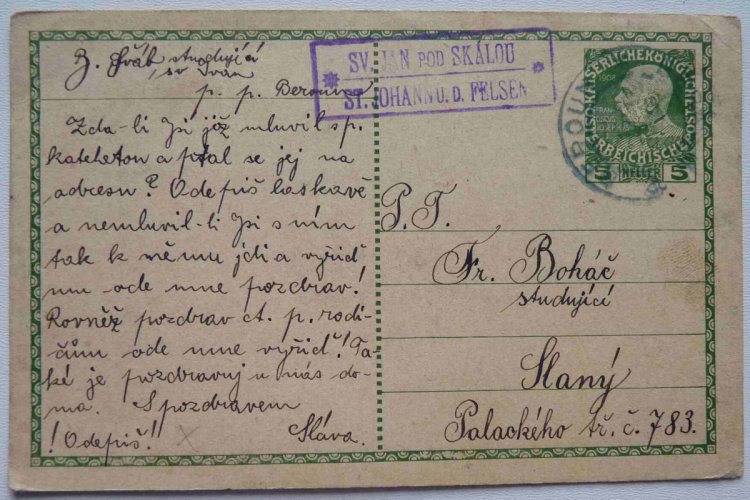 Z. Šváb studující
sv Ivan
p. p. Berounva
SV. JAN POD SKÁLOU
ST. JOHANN U. D. FELSEN
Zda-li jsi již mluvil s p.
katehetou a ptal se jej na
adresu? Odepiš laskavě
a nemluvil-li jsi s ním
tak k němu jdi a vyřiď
mu ode mne pozdrav!
Rovněž pozdrav ct. p. rodi-
čům ode mne vyřiď! Ta-
ké je pozdravuj u nás do-
ma. S pozdravem
! Odepiš! Sláva.
1908
FRAN-
5 HELLER 5
P. T.
Fr. Boháč
studující
Slaný
Palackého tř. č. 783.